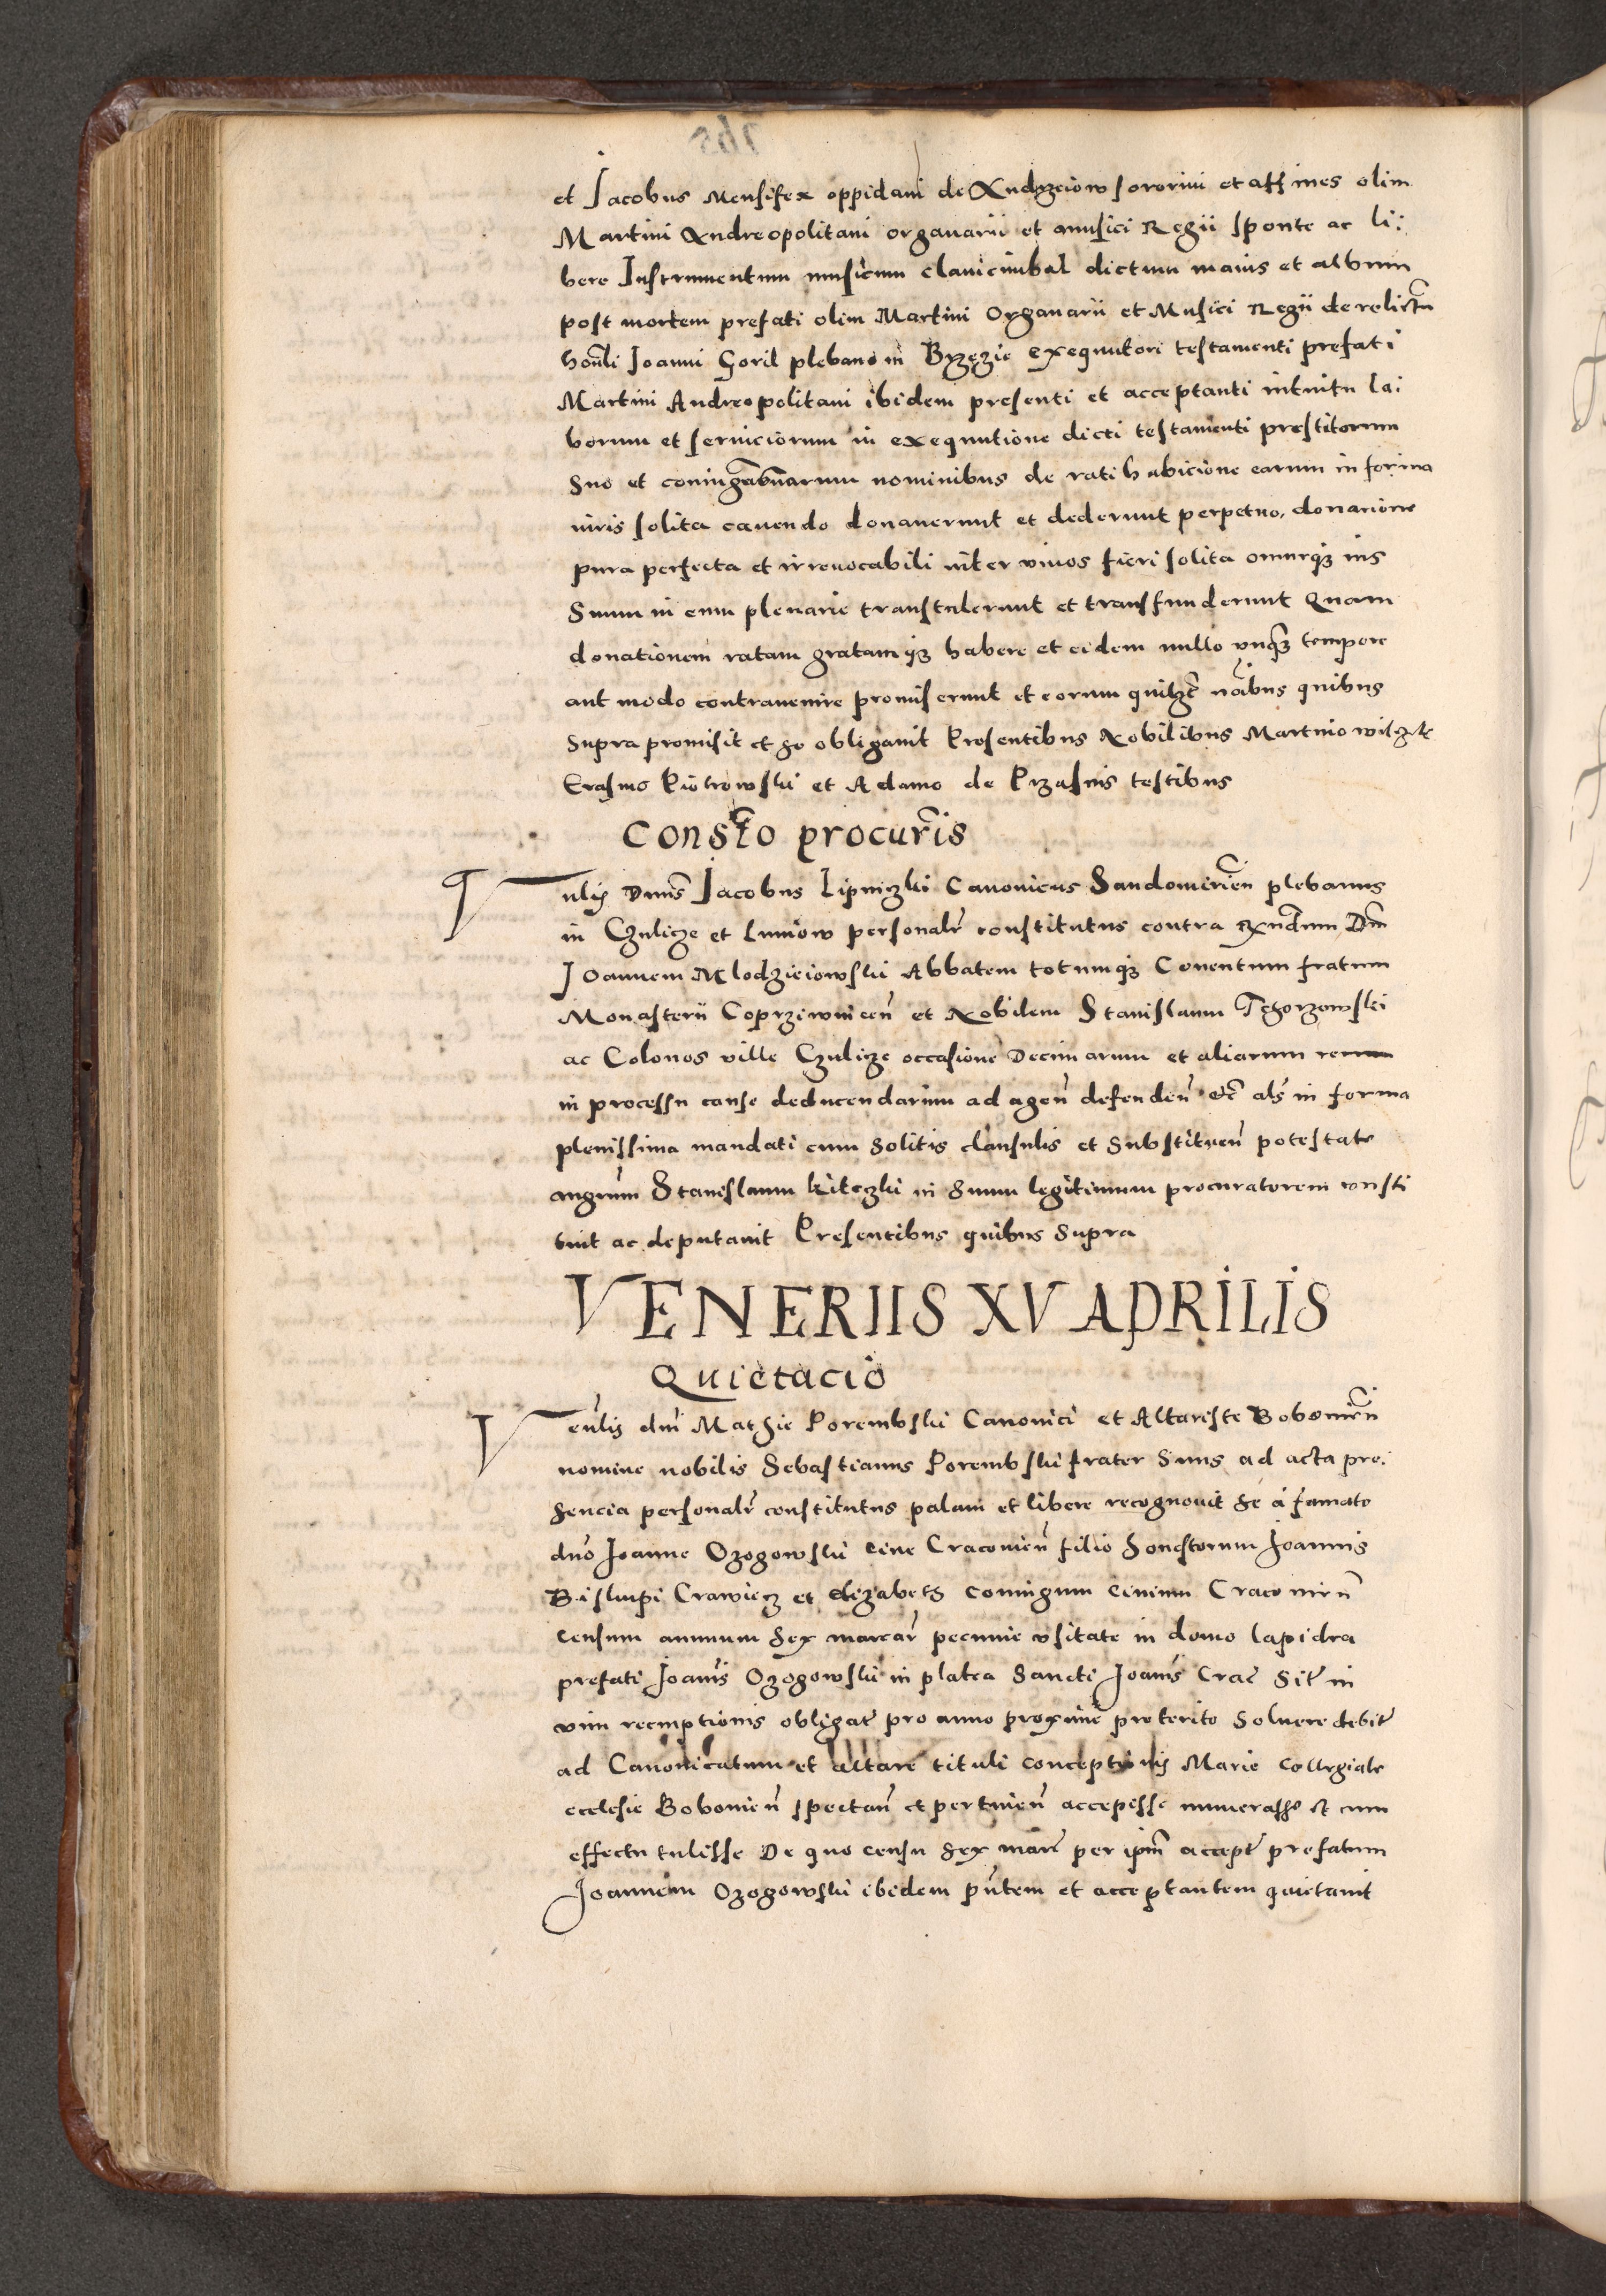 et Jacobus Mensifex oppidani de Andrzeiow sororini et affines olim
Martini Andreopolitani organarii et musici Regii sponte ac li:
bere Instrumentum musicum clauicimbal dictum maius et album
post mortem prefati olim Martini Organarii et Musici Regii derelictũ
honãli Joanni Goril plebano in Brzezie exequutori testamenti prefati
Martini Andreopolitani ibidem presenti et acceptanti intuitu la:
borum et seruiciorum in exequutione dicti testamenti prestitorum
Suo et nominibus de ratihabicione earum in forma
iuris solita cauendo donauerunt et dederunt perpetuo, donacione
pura perfecta et irreuocabili inter viuos fieri solita omneqз ius
Suum in eum plenarie transtulerunt et transfunderunt Quam
donationem ratam gratamqз habere et eidem nullo vnqз tempore
aut modo contrauenire promiserunt et eorum quilзt nõibus quibus
Supra promisit et se obligauit Presentibus Nobilibus Martino
Erasmo Piotrowski et Adamo de Przasnis testibus
Constto procuris
Vnlis Dnus Jacobus Lipniczki Canonicus Sandomirien plebanus
in Czulicze et Luniow personalr constitutus contra Rxndum Dnm
Joannem Mlodzieiowski Abbatem totumqз Conentum fratum
Monasterii Coprziwnicen et Nobilem Stanislaum Tegorzowski
ac Colonos ville Czulicze occasione Decimarum et aliarum rerum
in processu cause deducendarum ad agen defenden etc als in forma
plenissima mandati cum Solitis clausulis et Substituen potestate
mgrum Stanislaum Kiteczki in Suum legitimum procuratorem consti
tuit ac deputauit Presentibus quibus Supra
VENERIIS XV APRILIS
Quietacio
Venlis dni Mathie Porembski Canonici et Altariste Bobouien
nomine nobilis Sebastianus Porembski frater Suus ad acta pre:
sencia personalr constitutus palam et libere recognouit se a famato
dno Joanne Ozogowski ciue Cracouien filio honestorum Joannis
Biskupi Crawiecz et Elizabeth coniugum Ciuium Cracouien
censum annuum sex marcar pecunie vsitate in domo lapidea
prefati Joanis Ozogowski in platea Sancti Joanis Crac Sit in
vim reemptionis obligat pro anno proxime preterito Soluere debit
ad Canonicatum et altare tituli conceptionis Marie Collegiate
ecclesie Bobouien spectan et pertinen accepisse numerasse et cum
effectu tulisse De quo censu sex marc per ipm accept prefatum
Joannem Ozogowski ibidem pntem et acceptantem quietauit